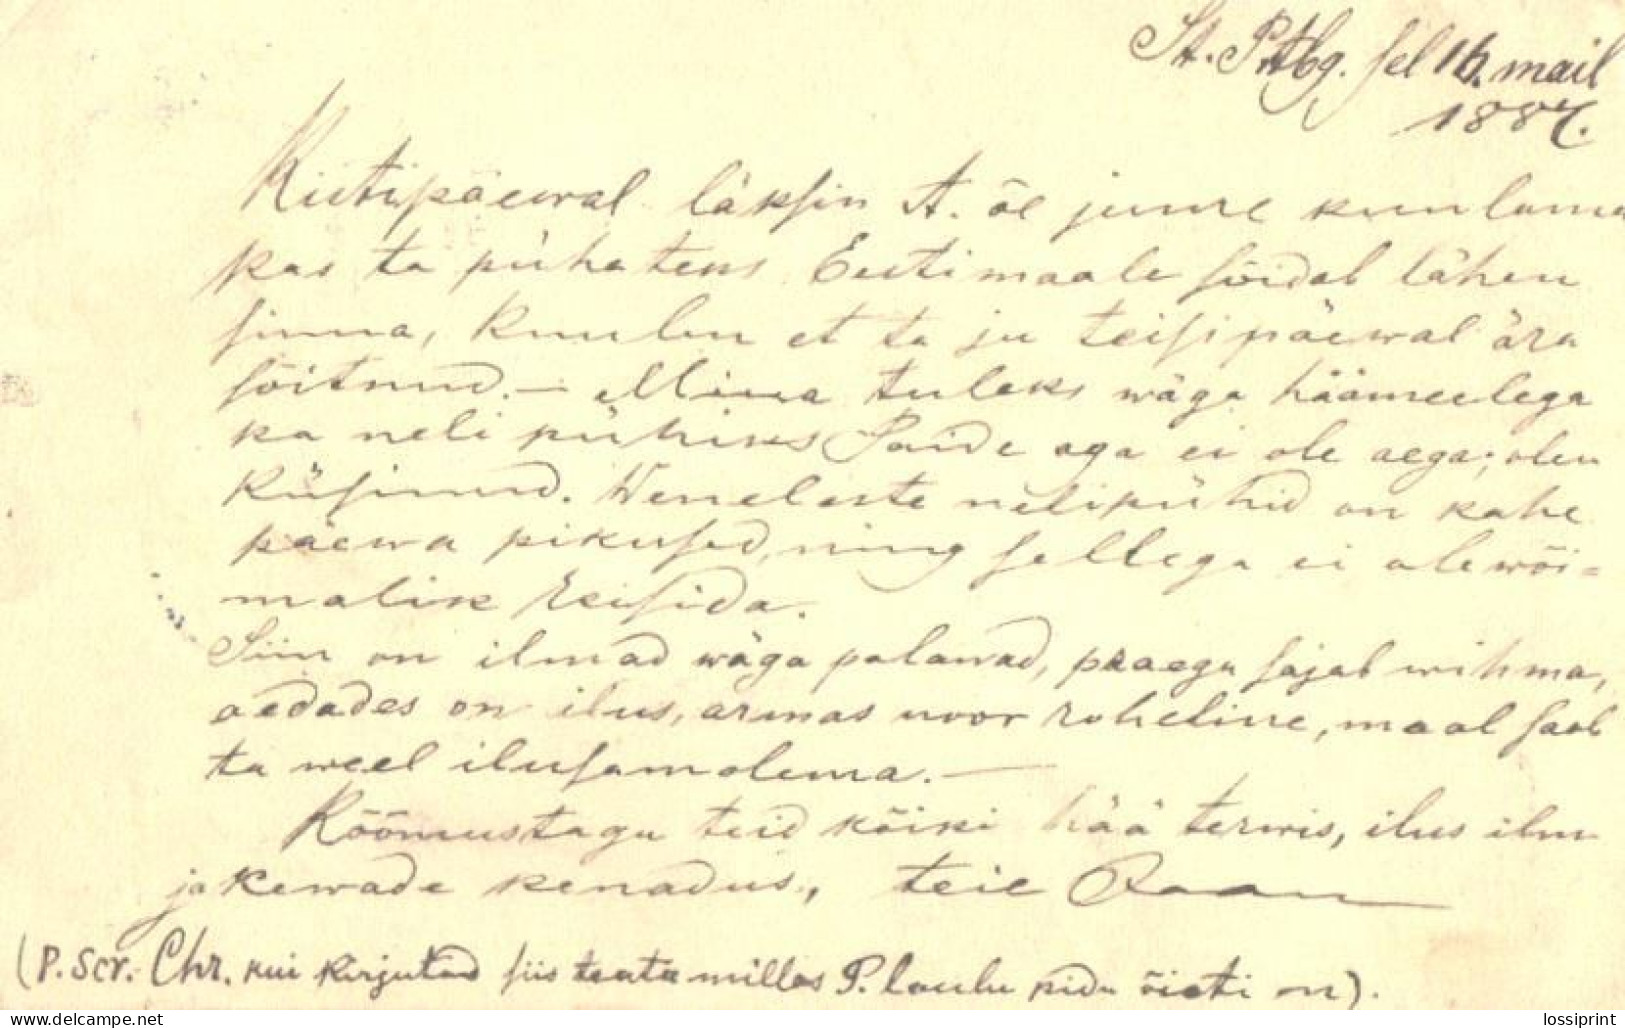 St. Ptbg. sel 16. mail
1887.
Ristipäewal läksin A. õe juure kuulama
kas ta pühateks Eestimaale sõidab lähen
sinna, kuulen et ta ju teisipäewal ära
sõitnud. — Minna tuleks wäga häämeelega
ka neli pühiks Paide aga ei ole aega; olen
küsinud. Wenelaste nelipühid on kahe
päewa pikused, ning sellega ei ole wõi=
malik reisida.
Siin on ilmad wäga palawad, praegu sajab wihma,
aedades on ilus, armas noor roheline, maal saab
ta weel ilusam olema. —
Rõõmustagu teid kõiki hää terwis, ilus ilm
ja kewade kenadus., teie
(P. Scr. Chr. kui kirjutad siis teata millas P. laulu pidu õieti on).
delcampe.net
lossiprint